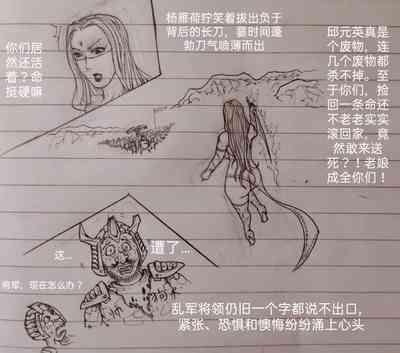 你们居
然还活
着？命
挺硬嘛
杨雁荷狞笑着拔出负于
背后的长刀，霎时间蓬
勃刀气喷薄而出
邱元英真是
个废物，连
几个废物都
杀不掉。至
于你们，抢
回一条命还
不老老实实
滚回家，竟
然敢来送
死？！老娘
成全你们！
这...
遭了...
将军，现在怎么办？
乱军将领仍旧一个字都说不出口，
紧张、恐惧和懊悔纷纷涌上心头